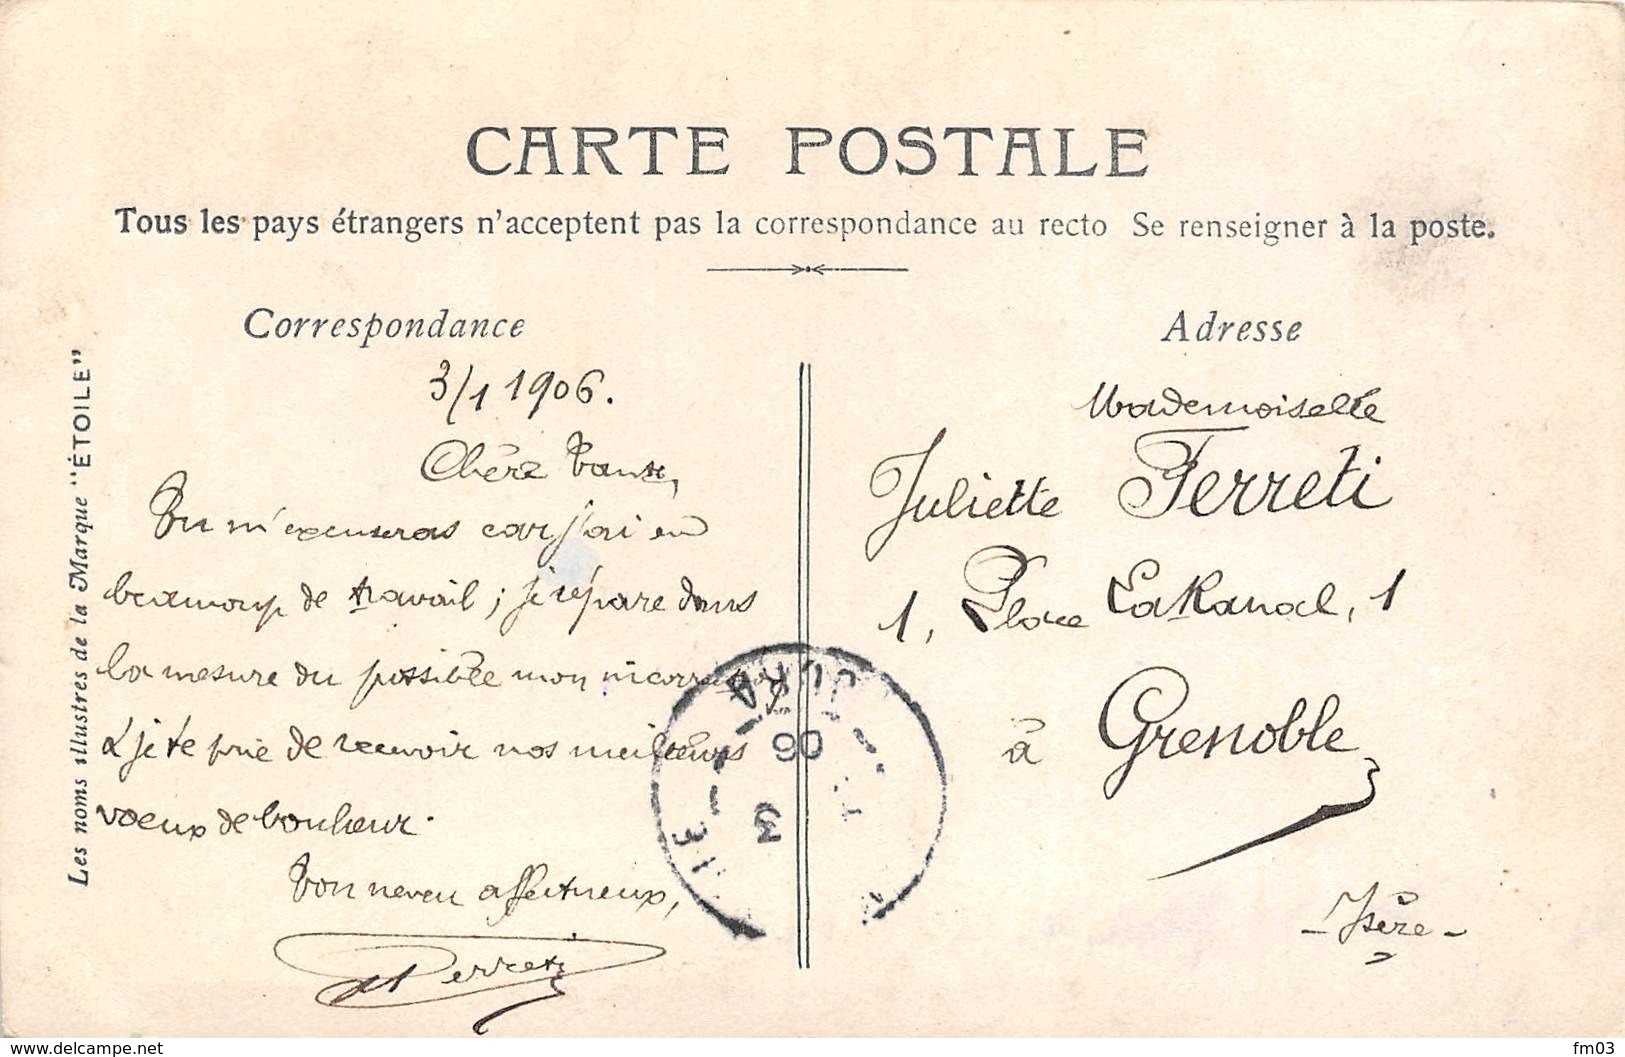 CARTE POSTALE
Tous les pays étrangers n'acceptent pas la correspondance au recto Se renseigner à la poste.
Correspondance
3/1 1906.
Chère Tante,
Tu m'excuseras car j'ai eu
beaucoup de travail ; je répare dans
la mesure du possible mon
& je te prie de recevoir nos meilleurs
voeux de bonheur.
Ton neveu affectueux,
Ferreti
Les noms illustres de la Marque "ÉTOILE"
Adresse
Mademoiselle
Juliette Ferreti
1, Place Lakanal, 1
à Grenoble
- Isère -
JURA
06
3
delcampe.net
fm03